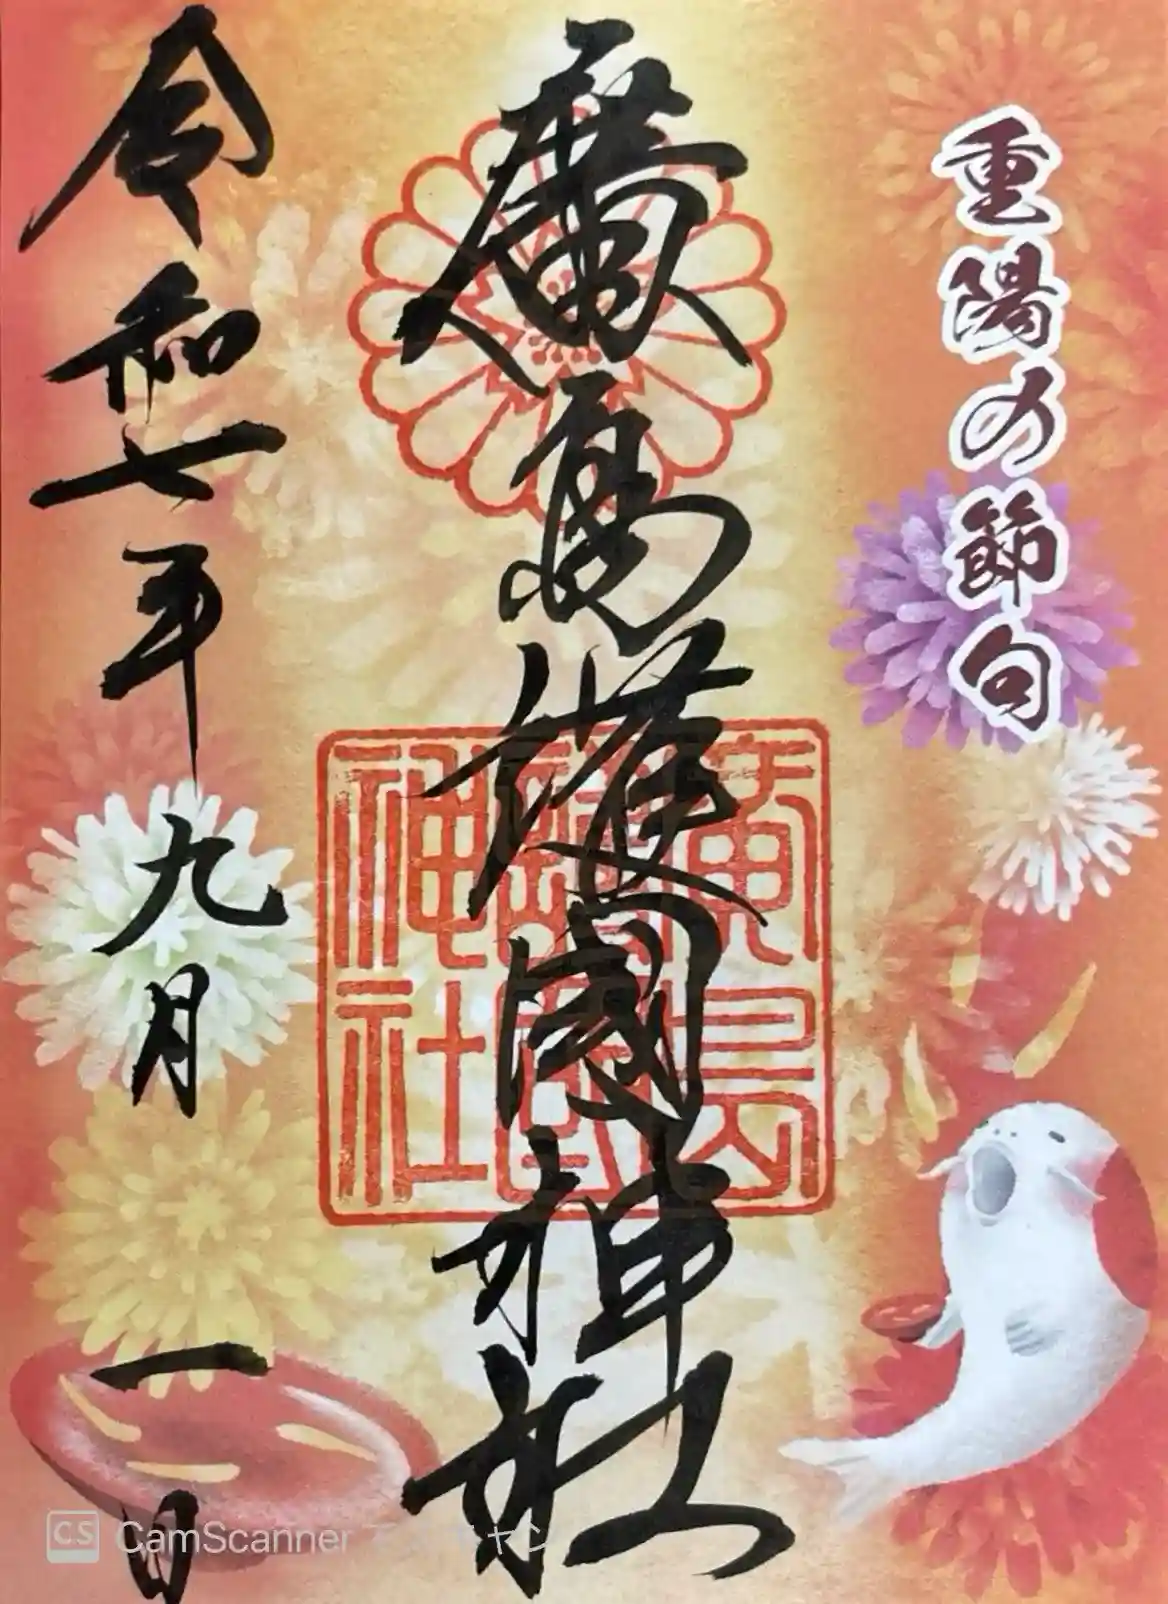 重陽の節句
廣島護國神社
廣島
護國
神社
令和七年 九月 一日
CS CamScanner でスキャン